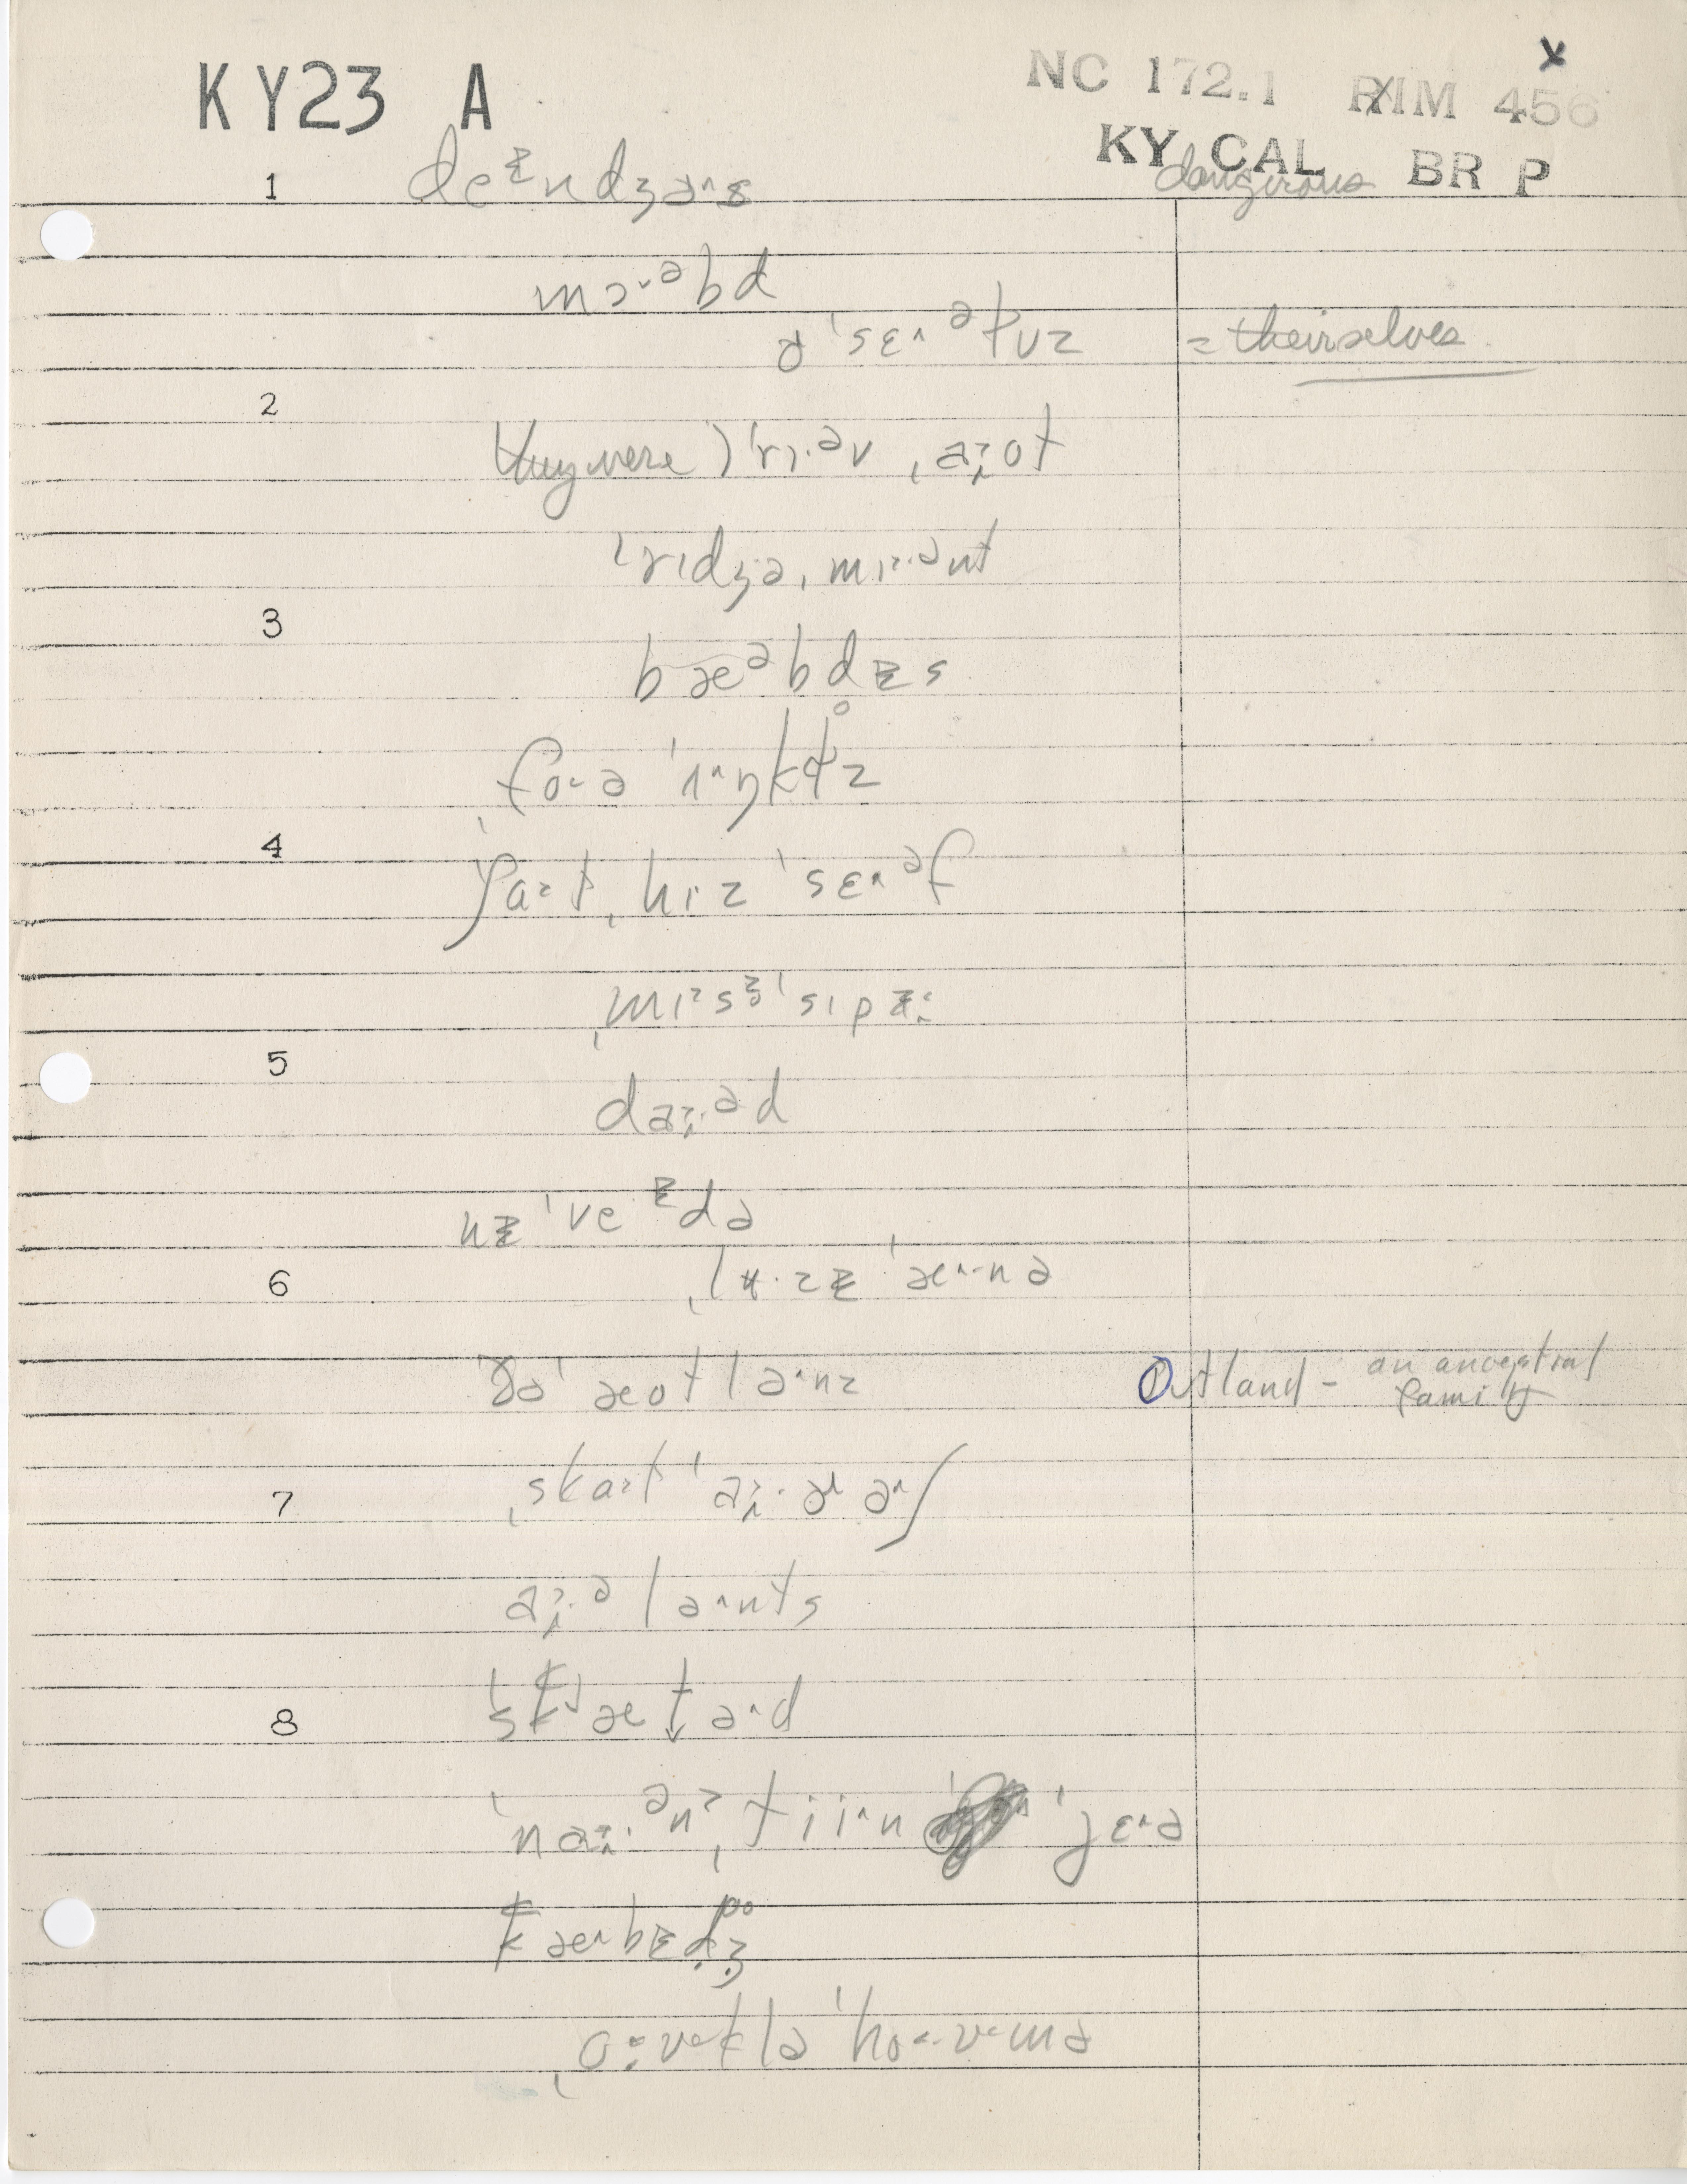 KY23 A
NC 172.1 RIM 456
x
KY CAL BR P
1 deᵻndʒəs dangerous
mɔ·ᵊbd
ə'sɛ˄ᵊɫvz = theirselves
2
they were) 'rɪ·ᵊv ˌaɪot
'rɪdʒəˌmɪ·ᵊnt
3
bæᵊbdᵻs
ˌfoə 'ʌ˄ŋkɫ̥z
4
ʃatˌhɪz 'sɛ˄ᵊf
ˌmɪsᵻ'sɪpᵻ
5
daɪ·ᵊd
nᵻ'veᵻdə
6
ˌlʉ·zᵻ'æ˄nə
ðə'æotlənz Outland - an ancestral family
7
ˌskat'aɪ·ə əʃ
aɪ·ᵊlənts
8
'skætəd
'naɪ·ᵊnˌtiin 'jɛ˄ə
kæ˄bᵻdʒ
ˌoklə'homə